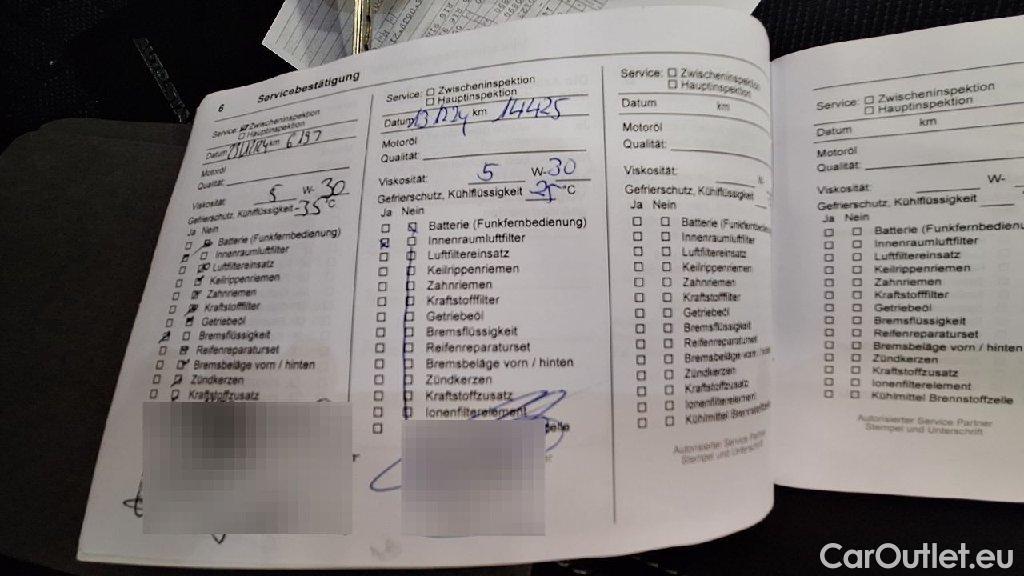 6 Servicebestätigung
Service: Zwischeninspektion
Hauptinspektion
Datum km 6197
Motoröl
Qualität:
Viskosität: 5 W- 30
Gefrierschutz, Kühlflüssigkeit -35 °C
Ja Nein
Batterie (Funkfernbedienung)
Innenraumluftfilter
Luftfiltereinsatz
Keilrippenriemen
Zahnriemen
Kraftstofffilter
Getriebeöl
Bremsflüssigkeit
Reifenreparaturset
Bremsbeläge vorn / hinten
Zündkerzen
Kraftstoffzusatz
Service: Zwischeninspektion
Hauptinspektion
Datum km 14425
Motoröl
Qualität:
Viskosität: 5 W- 30
Gefrierschutz, Kühlflüssigkeit 25 °C
Ja Nein
Batterie (Funkfernbedienung)
Innenraumluftfilter
Luftfiltereinsatz
Keilrippenriemen
Zahnriemen
Kraftstofffilter
Getriebeöl
Bremsflüssigkeit
Reifenreparaturset
Bremsbeläge vorn / hinten
Zündkerzen
Kraftstoffzusatz
Ionenfilterelement
Service: Zwischeninspektion
Hauptinspektion
Datum km
Motoröl
Qualität:
Viskosität: W-
Gefrierschutz, Kühlflüssigkeit
Ja Nein
Batterie (Funkfernbedienu
Innenraumluftfilter
Luftfiltereinsatz
Keilrippenriemen
Zahnriemen
Kraftstofffilter
Getriebeöl
Bremsflüssigkeit
Reifenreparaturset
Bremsbeläge vorn / hinten
Zündkerzen
Kraftstoffzusatz
Ionenfilterelement
Kühlmittel Brennstoffzelle
Autorisierter Service Partner
Stempel und Unterschrift
Service: Zwischeninspektion
Hauptinspektion
Datum km
Motoröl
Qualität:
Viskosität: W-
Gefrierschutz, Kühlflüssigkeit
Ja Nein
Batterie (Funkfernbedienu
Innenraumluftfilter
Luftfiltereinsatz
Keilrippenriemen
Zahnriemen
Kraftstofffilter
Getriebeöl
Bremsflüssigkeit
Reifenreparaturset
Bremsbeläge vorn / hinten
Zündkerzen
Kraftstoffzusatz
Ionenfilterelement
Kühlmittel Brennstoffzelle
Autorisierter Service Partner
Stempel und Unterschrift
CarOutlet.eu